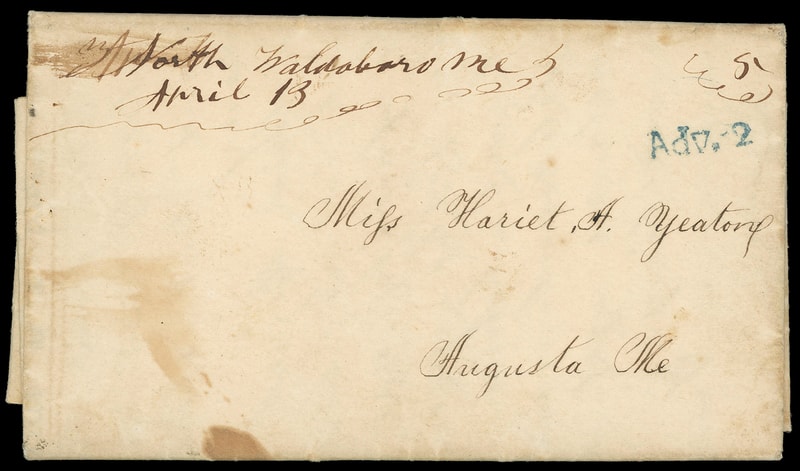 North Waldoboro Me
5
April 13
Adv. 2
Miss Hariet, A. Yeaton
Augusta Me